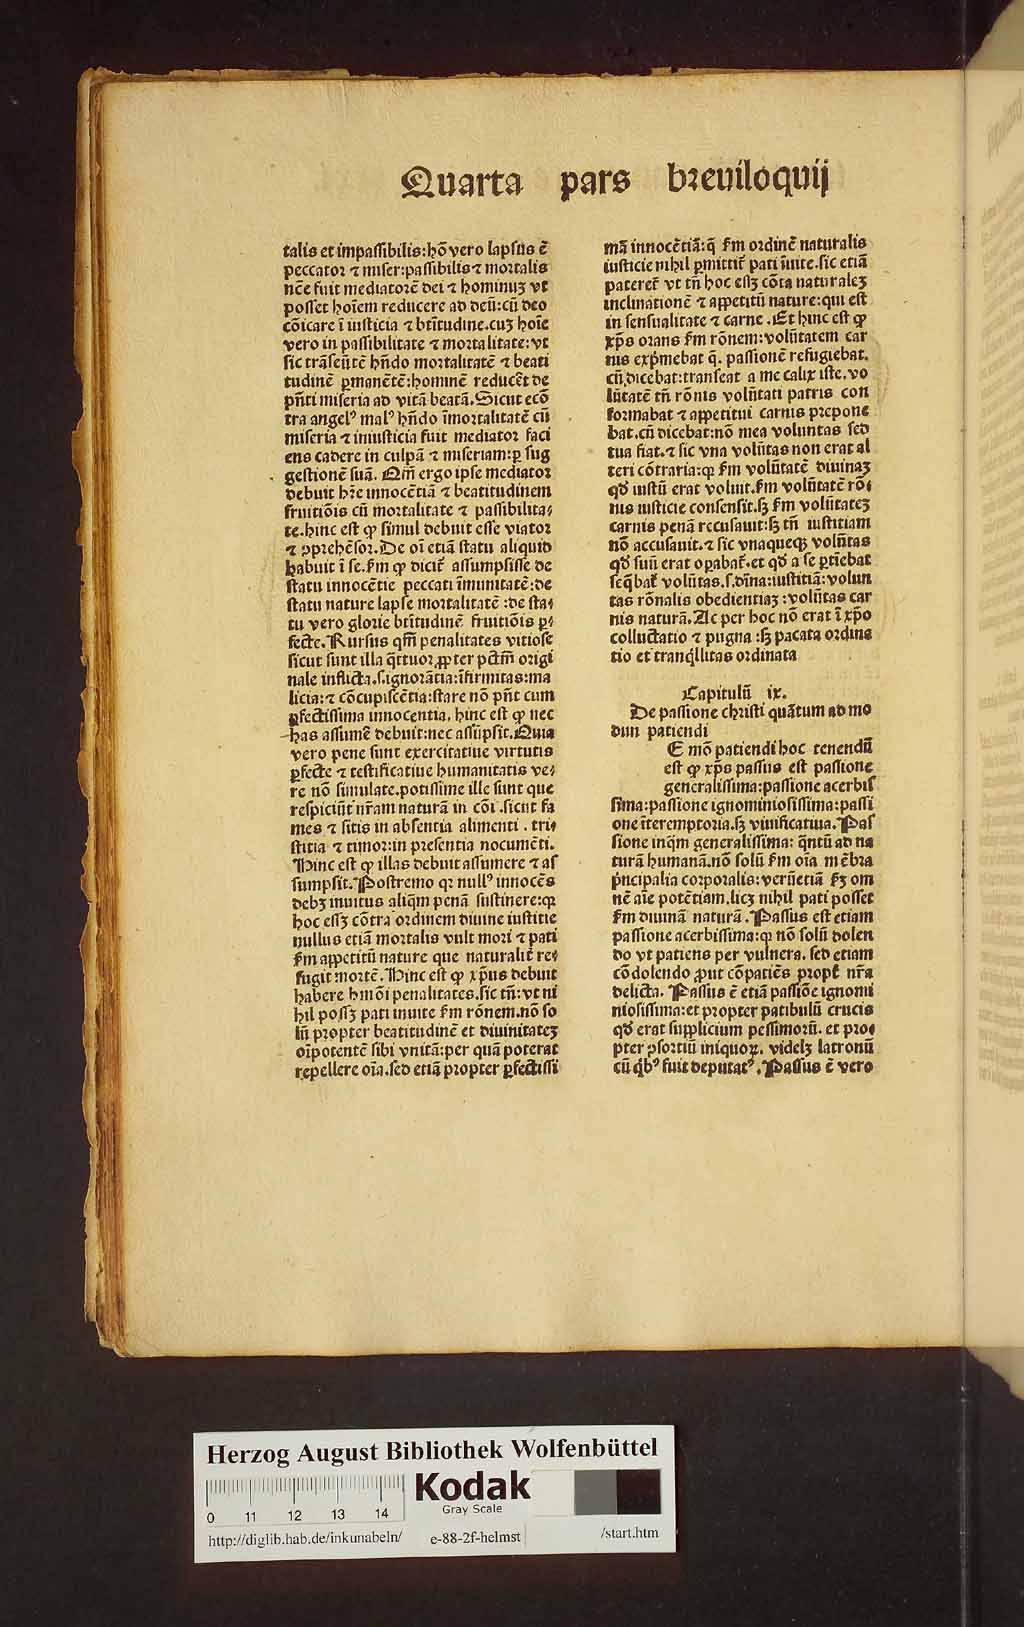 Quarta pars breuiloquij
talis et impassibilis:hō vero lapsus ē
peccator ⁊ miser:passibilis ⁊ mortalis
nēe fuit mediatorē dei ⁊ hominuꝫ vt
posset hoīem reducere ad deū:cū deo
cōicare ī iusticia ⁊ btītudine.cuꝫ hoīe
vero in passibilitate ⁊ mortalitate:vt
sic trāseūtē hn̄do mortalitatē ⁊ beati
tudinē ꝑmanētē:hominē reduceret de
pn̄ti miseria ad vitā beatā.Sicut ecō
tra angelꝰ malꝰ hn̄do īmortalitatē cū
miseria ⁊ iniusticia fuit mediator faci
ens cadere in culpā ⁊ miseriam:ꝑ sug
gestionē suā. Qm̄ ergo ipse mediator
debuit hr̄e innocētiā ⁊ beatitudinem
fruitiōis cū mortalitate ⁊ passibilita⸗
te.hinc est ꝙ simul debuit esse viator
⁊ ꝯprehēsor.De oī etiā statu aliquid
habuit ī se.fm̄ ꝙ dicit̄ assumpsisse de
statu innocētie peccati īmunitatē:de
statu nature lapse mortalitatē :de sta⸗
tu vero glorie btītudinē fruitiōis ꝑ⸗
fecte.Rursus qm̄ penalitates vitiose
sicut sunt illa q̄ttuor ꝓpter pctm̄ origi
nale inflicta.s.ignorātia:īfirmitas:ma
licia:⁊ cōcupiscētia:stare nō pn̄t cum
ꝑfectissima innocentia. hinc est ꝙ nec
has assumē debuit:nec assūpsit.Quia
vero pene sunt exercitatiue virtutis
ꝑfecte ⁊ testificatiue humanitatis ve⸗
re nō simulate.potissime ille sunt que
respiciūt nr̄am naturā in cōi.sicut fa
mes ⁊ sitis in absentia alimenti . tri⸗
stitia ⁊ timor:in presentia nocumēti.
Hinc est ꝙ illas debuit assumere ⁊ as
sumpsit.Postremo qꝛ nullꝰ innocēs
debꝫ inuitus aliqm̄ penā sustinere:qꝛ
hoc essꝫ cōtra ordinem diuine iustitie
nullus etiā mortalis vult mori ⁊ pati
fm̄ appetitū nature que naturalit̄ re⸗
fugit mortē.Hinc est ꝙ xp̄us debuit
habere hmōi penalitates.sic tn̄:vt ni
hil possꝫ pati inuite fm̄ rōnem.nō so
lū propter beatitudinē et diuinitateꝫ
oīpotentē sibi vnitā:per quā poterat
repellere oīa.sed etiā propter ꝑfectissi
mā innocētiā:q̄ fm̄ ordinē naturalis
iusticie nihil ꝑmittit̄ pati īuite.sic etiā
pateret̄ vt tn̄ hoc essꝫ cōta naturaleꝫ
inclinationē ⁊ appetitū nature:qui est
in sensualitate ⁊ carne .Et hinc est ꝙ
xp̄s orans fm̄ rōnem:volūtatem car
nis exp̄mebat q̄. passionē refugiebat.
cū dicebat:transeat a me calix iste.vo
lūtatē tn̄ rōnis volūtati patris con
formabat ⁊ appetitui carnis prepone
bat.cū dicebat:nō mea voluntas sed
tua fiat.⁊ sic vna volūtas non erat al
teri cōtraria:qꝛ fm̄ volūtatē diuinaꝫ
qd̄ iustū erat voluit.fm̄ volūtatē rō⸗
nis iusticie consensit.sꝫ fm̄ volūtateꝫ
carnis penā recusauit:sꝫ tn̄ iustitiam
nō accusauit.⁊ sic vnaqueqꝫ volūtas
qd̄ suū erat oꝑabat̄.et qd̄ a se ꝑtīebat
seq̄bat̄ volūtas.s.dīna:iustitiā:volun
tas rōnalis obedientiaꝫ :volūtas car
nis naturā.Ac per hoc nō erat ī xp̄o
colluctatio ⁊ pugna :sꝫ pacata ordina
tio et tranq̄llitas ordinata
Capitulū ix.
De passione christi quātum ad mo
dun patiendi
E mō patiendi hoc tenendū
est ꝙ xp̄s passus est passione
generalissima:passione acerbis
sima:passione ignominiosissima:passi
one īteremptoria.sꝫ viuificatiua.Pas
sione inqm̄ generalissima: q̄ntū ad na
turā humanā.nō solū fm̄ oīa mēbra
p̄ncipalia corporalia:verūetiā fꝫ om
nē aīe potētiam.licꝫ nihil pati posset
fm̄ diuinā naturā .Passus est etiam
passione acerbissima:qꝛ nō solū dolen
do vt patiens per vulnera. sed etiam
cōdolendo ꝓut cōpatiēs propt̄ nr̄a
delicta. Passus ē etiā passiōe ignomi
niosissima:et propter patibulū crucis
qd̄ erat supplicium pessimorū. et pro⸗
pter ꝯsortiū iniquoꝝ. videlꝫ latronū
cū q̄bꝰ fuit deputatꝰ.Passus ē vero
Herzog August Bibliothek Wolfenbüttel
Kodak
Gray Scale
0 11 12 13 14
http://diglib.hab.de/inkunabeln/ e-88-2f-helmst /start.htm